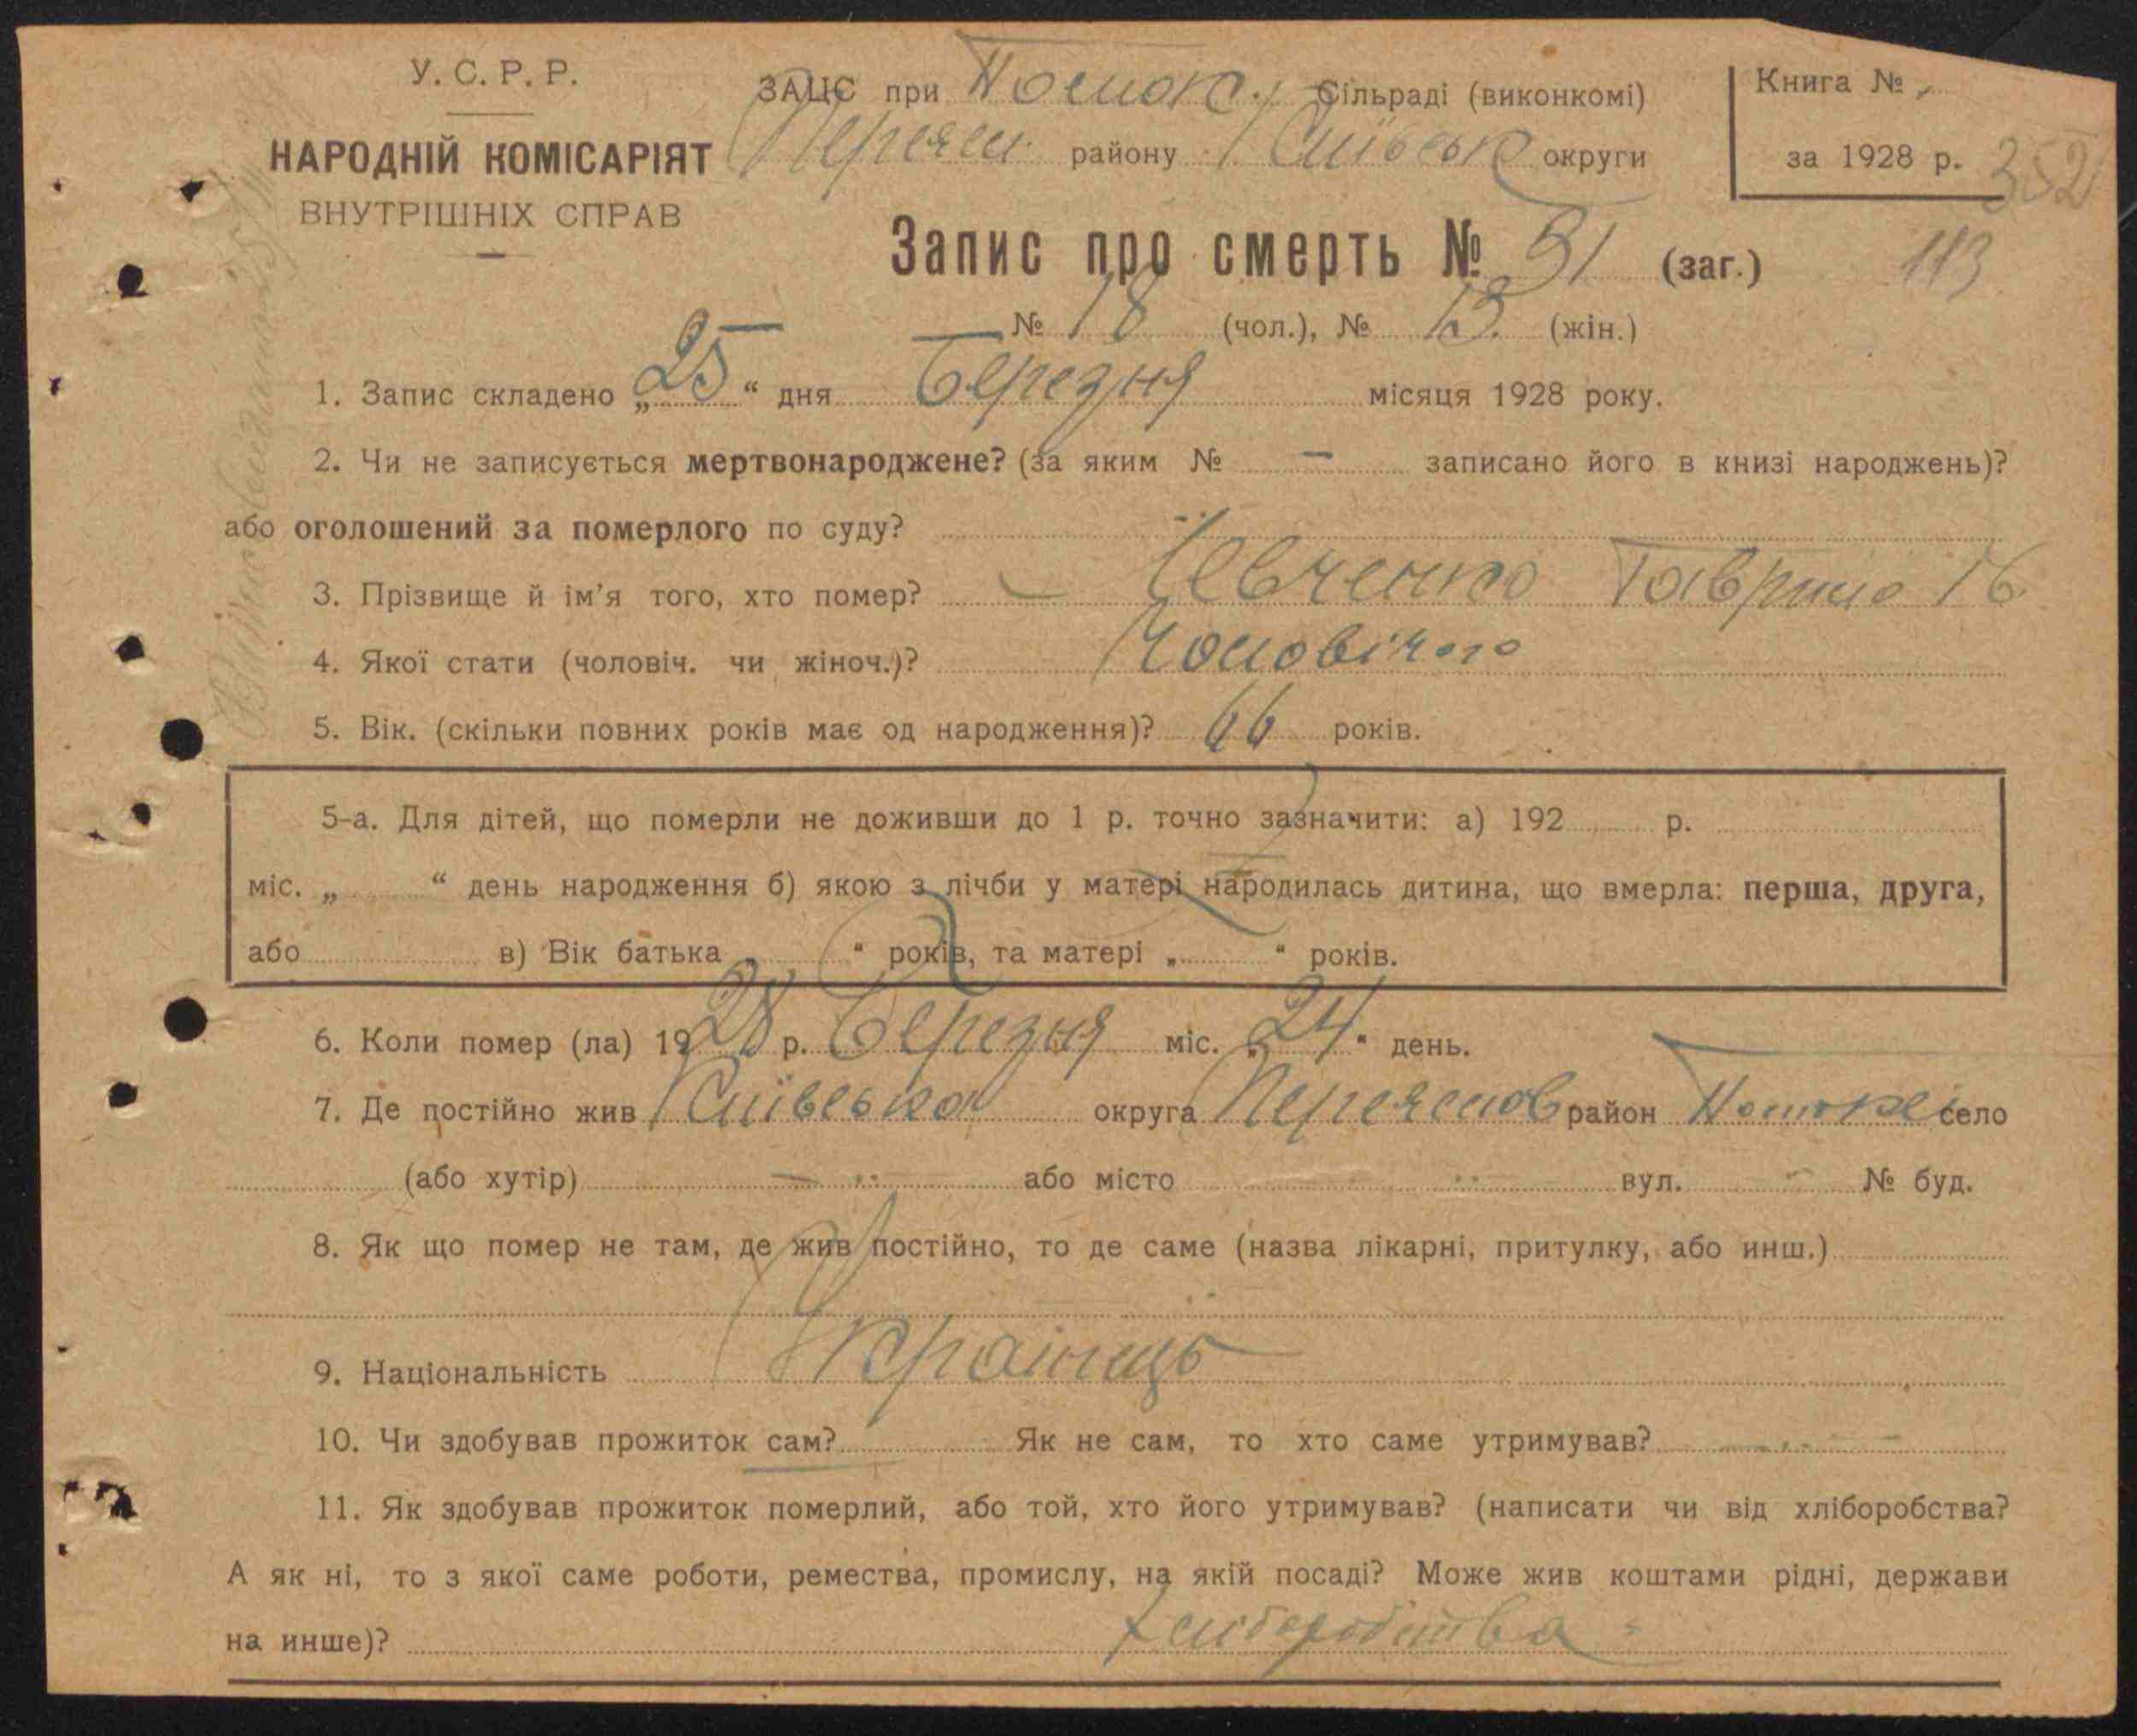 У. С. Р. Р.
НАРОДНІЙ КОМІСАРІЯТ
ВНУТРІШНІХ СПРАВ
ЗАЦС при Поток. Сільраді (виконкомі)
Переяс. району Київськ округи
Книга №
за 1928 р. 352
Запис про смерть № 31 (заг.) 113
№ 18 (чол.), № 13. (жін.)
1. Запис складено „25“ дня Березня місяця 1928 року.
2. Чи не записується мертвонароджене? (за яким № — записано його в книзі народжень)?
або оголошений за померлого по суду?
3. Прізвище й ім'я того, хто помер? Гаврило
4. Якої стати (чоловіч. чи жіноч.)? Чоловічого
5. Вік. (скільки повних років має од народження)? 66 років.
5-а. Для дітей, що померли не доживши до 1 р. точно зазначити: а) 192 р.
міс. „ “ день народження б) якою з лічби у матері народилась дитина, що вмерла: перша, друга,
або в) Вік батька „ “ років, та матері „ “ років.
6. Коли помер (ла) 1928 р. Березня міс. „24“ день.
7. Де постійно жив Київська округа Переяслов район село
(або хутір) — або місто вул. № буд.
8. Як що помер не там, де жив постійно, то де саме (назва лікарні, притулку, або инш.)
9. Національність Українець
10. Чи здобував прожиток сам? Як не сам, то хто саме утримував? —
11. Як здобував прожиток померлий, або той, хто його утримував? (написати чи від хліборобства?
А як ні, то з якої саме роботи, ремества, промислу, на якій посаді? Може жив коштами рідні, держави
на инше)? Хліборобства